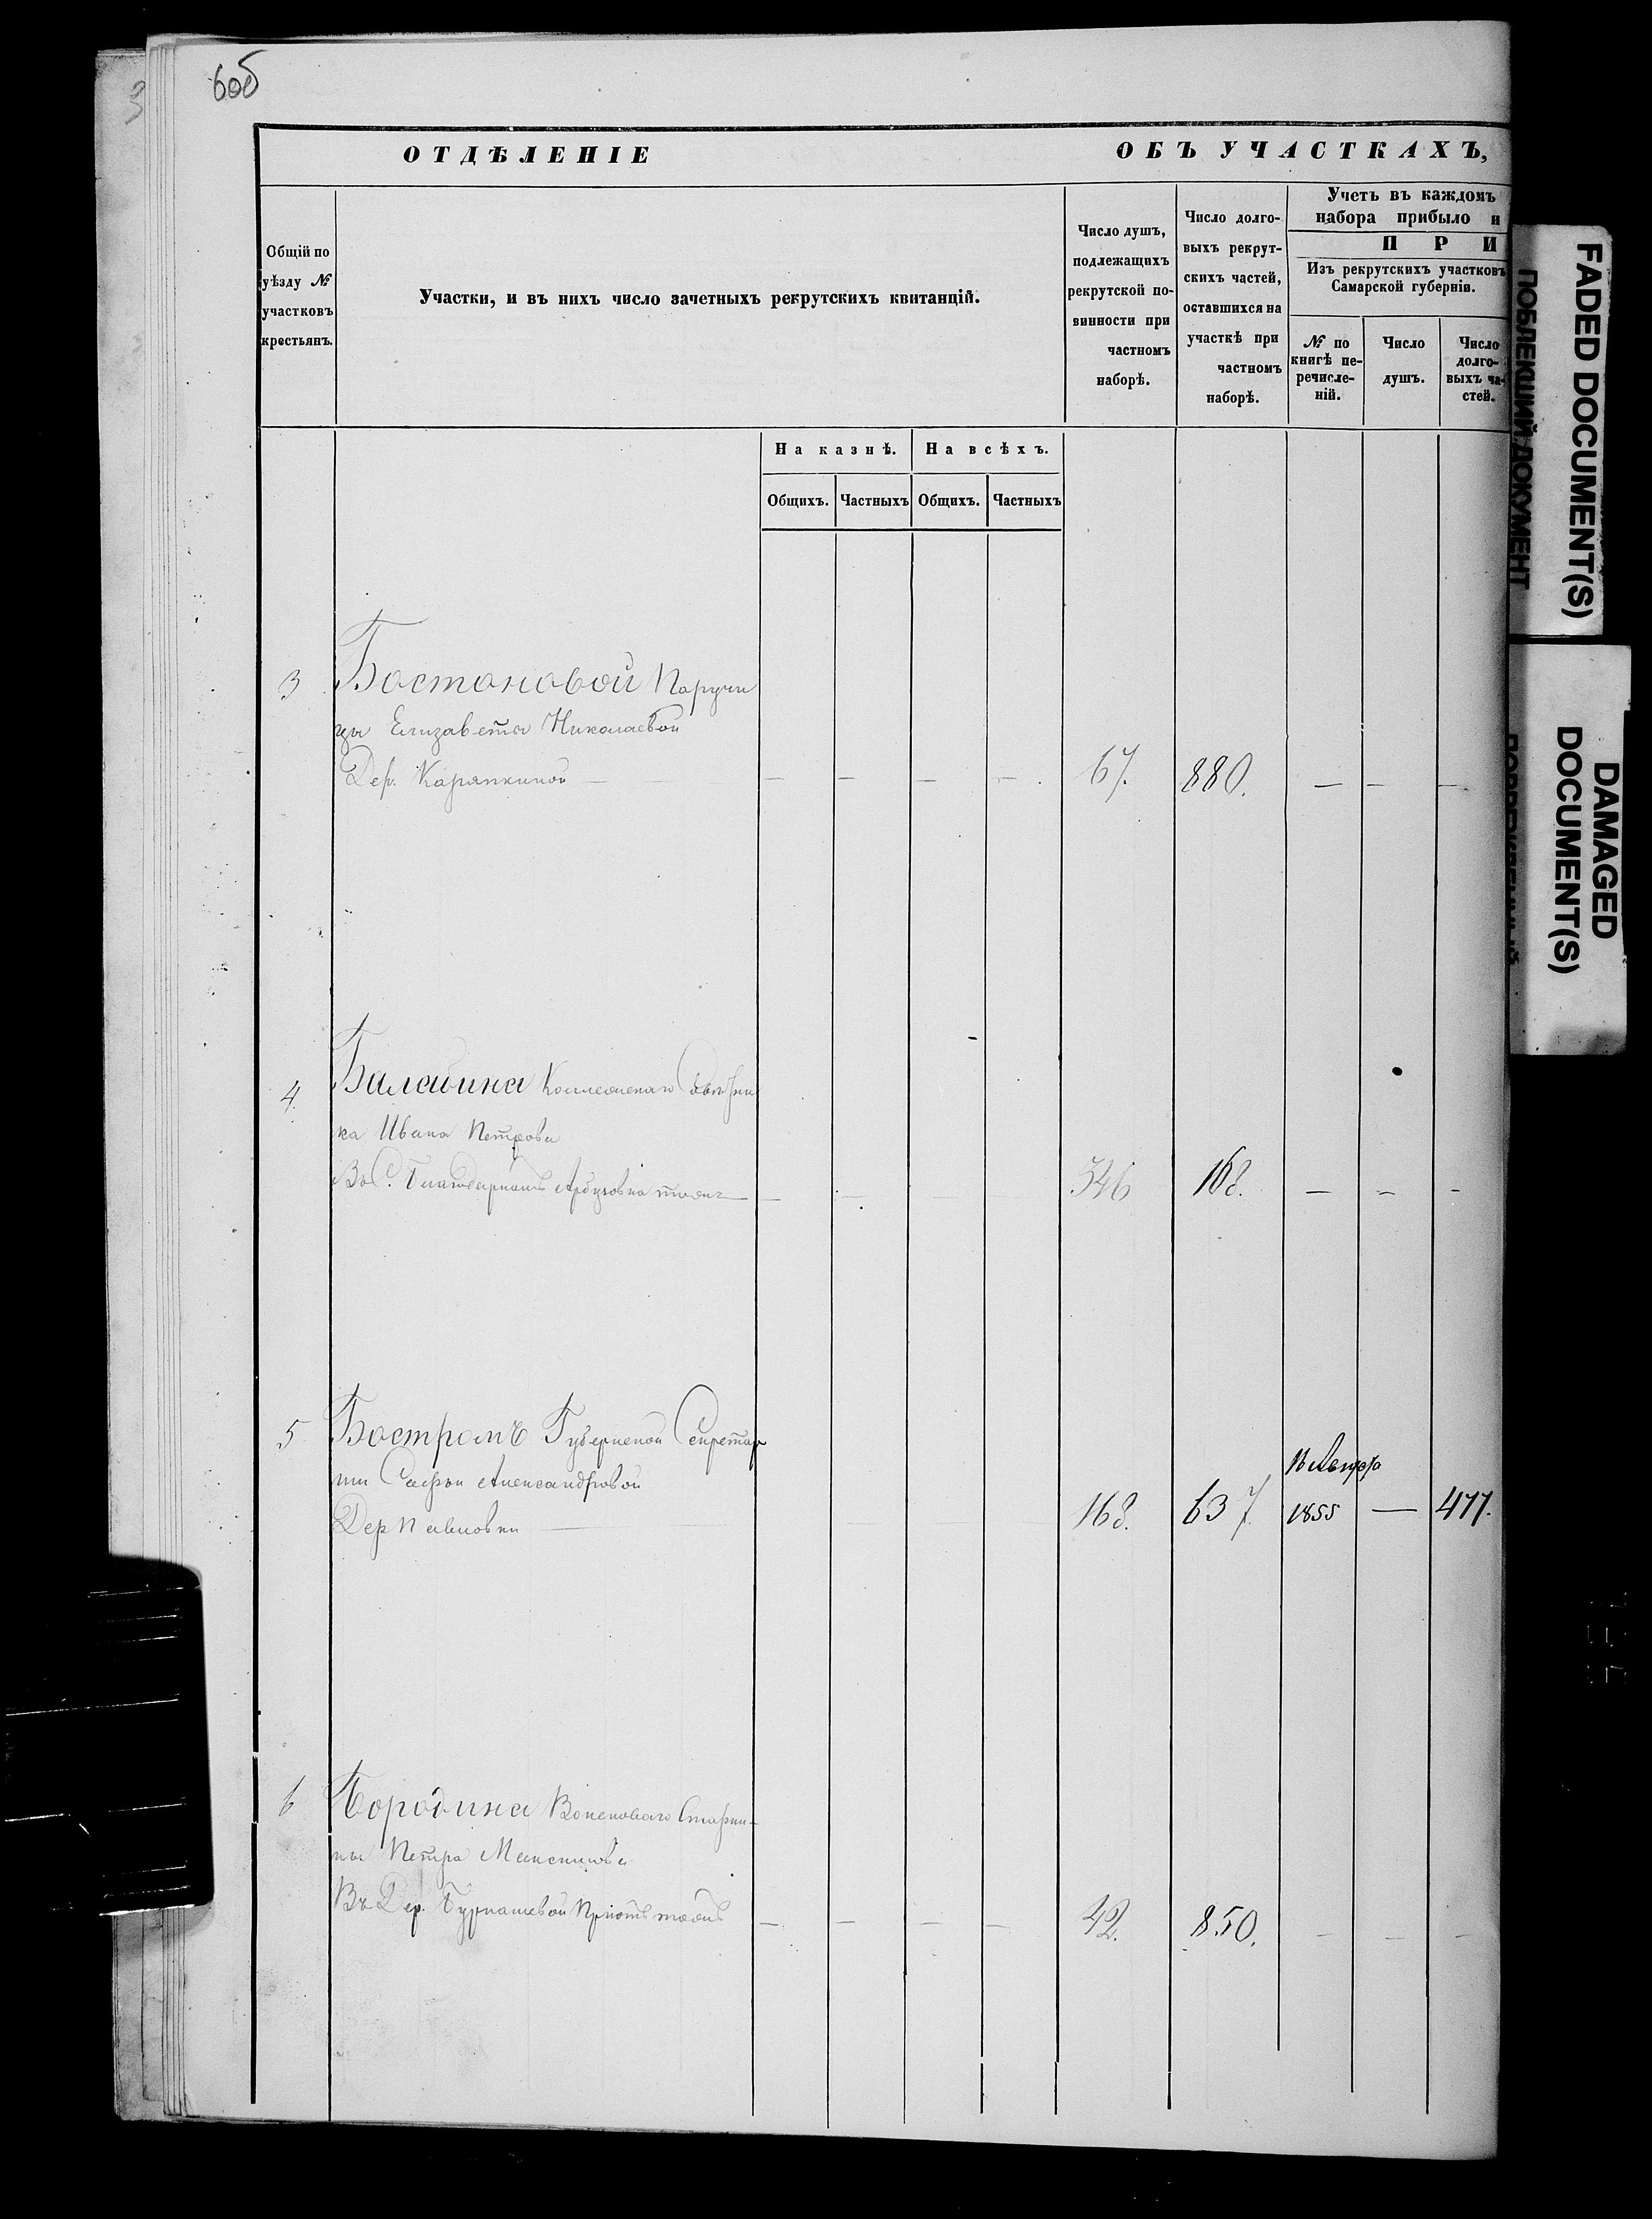 6об
3
ОТДѢЛЕНІЕ ОБЪ УЧАСТКАХЪ,
Общій по
уѣзду №
участковъ
крестьянъ.
Участки, и въ нихъ число зачетныхъ рекрутскихъ квитанцій.
Число душъ,
подлежащихъ
рекрутской по-
винности при
частномъ
наборѣ.
Число долго-
выхъ рекрут-
скихъ частей,
оставшихся на
участкѣ при
частномъ
наборѣ.
Учетъ въ каждомъ
набора прибыло и
ПРИ
Изъ рекрутскихъ участковъ
Самарской губерніи.
№ по
книгѣ пе-
речисле-
ній.
Число
душъ.
Число
долго-
выхъ ча-
стей.
На казнѣ. На всѣхъ.
Общихъ. Частныхъ Общихъ. Частныхъ
3 Бостоновой Поручи
цы Елизаветы Николаевой
Дер. Каряпкиной — — — — — 67. 880. — — —
4. Балабина Коллежскаго Советни
ка Ивана Петрова
Въ С. Арбузовка тожъ — — — — 346 168. — — —
5 Бостромъ Губернской Секретар
ши Софьи Александровой
Дер Павловки — — — — 168. 637. 1855 — 477.
6 Бородина Войсковаго Старши-
ны Петра Максимова
Въ Дер. Бурнашевой Пріютъ тожъ — — — — 42. 850. — — —
FADED DOCUMENT(S)
ПОБЛЕКШИЙ ДОКУМЕНТ
DAMAGED
DOCUMENT(S)